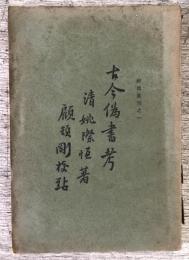 辨偽叢刊之一
古今偽書考
清姚際恒著
顧頡剛校點